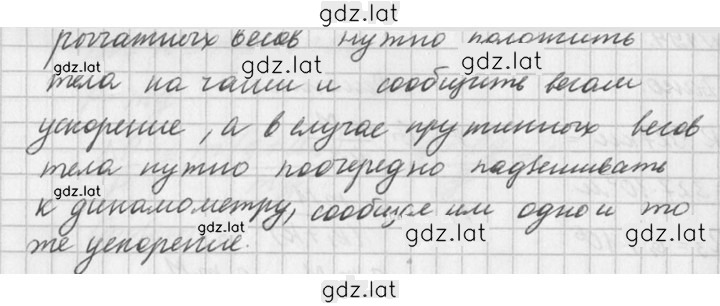 gdz.lat
рычажных весов нужно положить
gdz.lat gdz.lat
тела на чаши и сообщить весам
ускорение, а в случае пружинных весов
тела нужно поочередно подвешивать
gdz.lat gdz.lat gdz.lat
к динамометру, сообщая им одно и то
же ускорение.
gdz.lat gdz.lat
gdz.lat